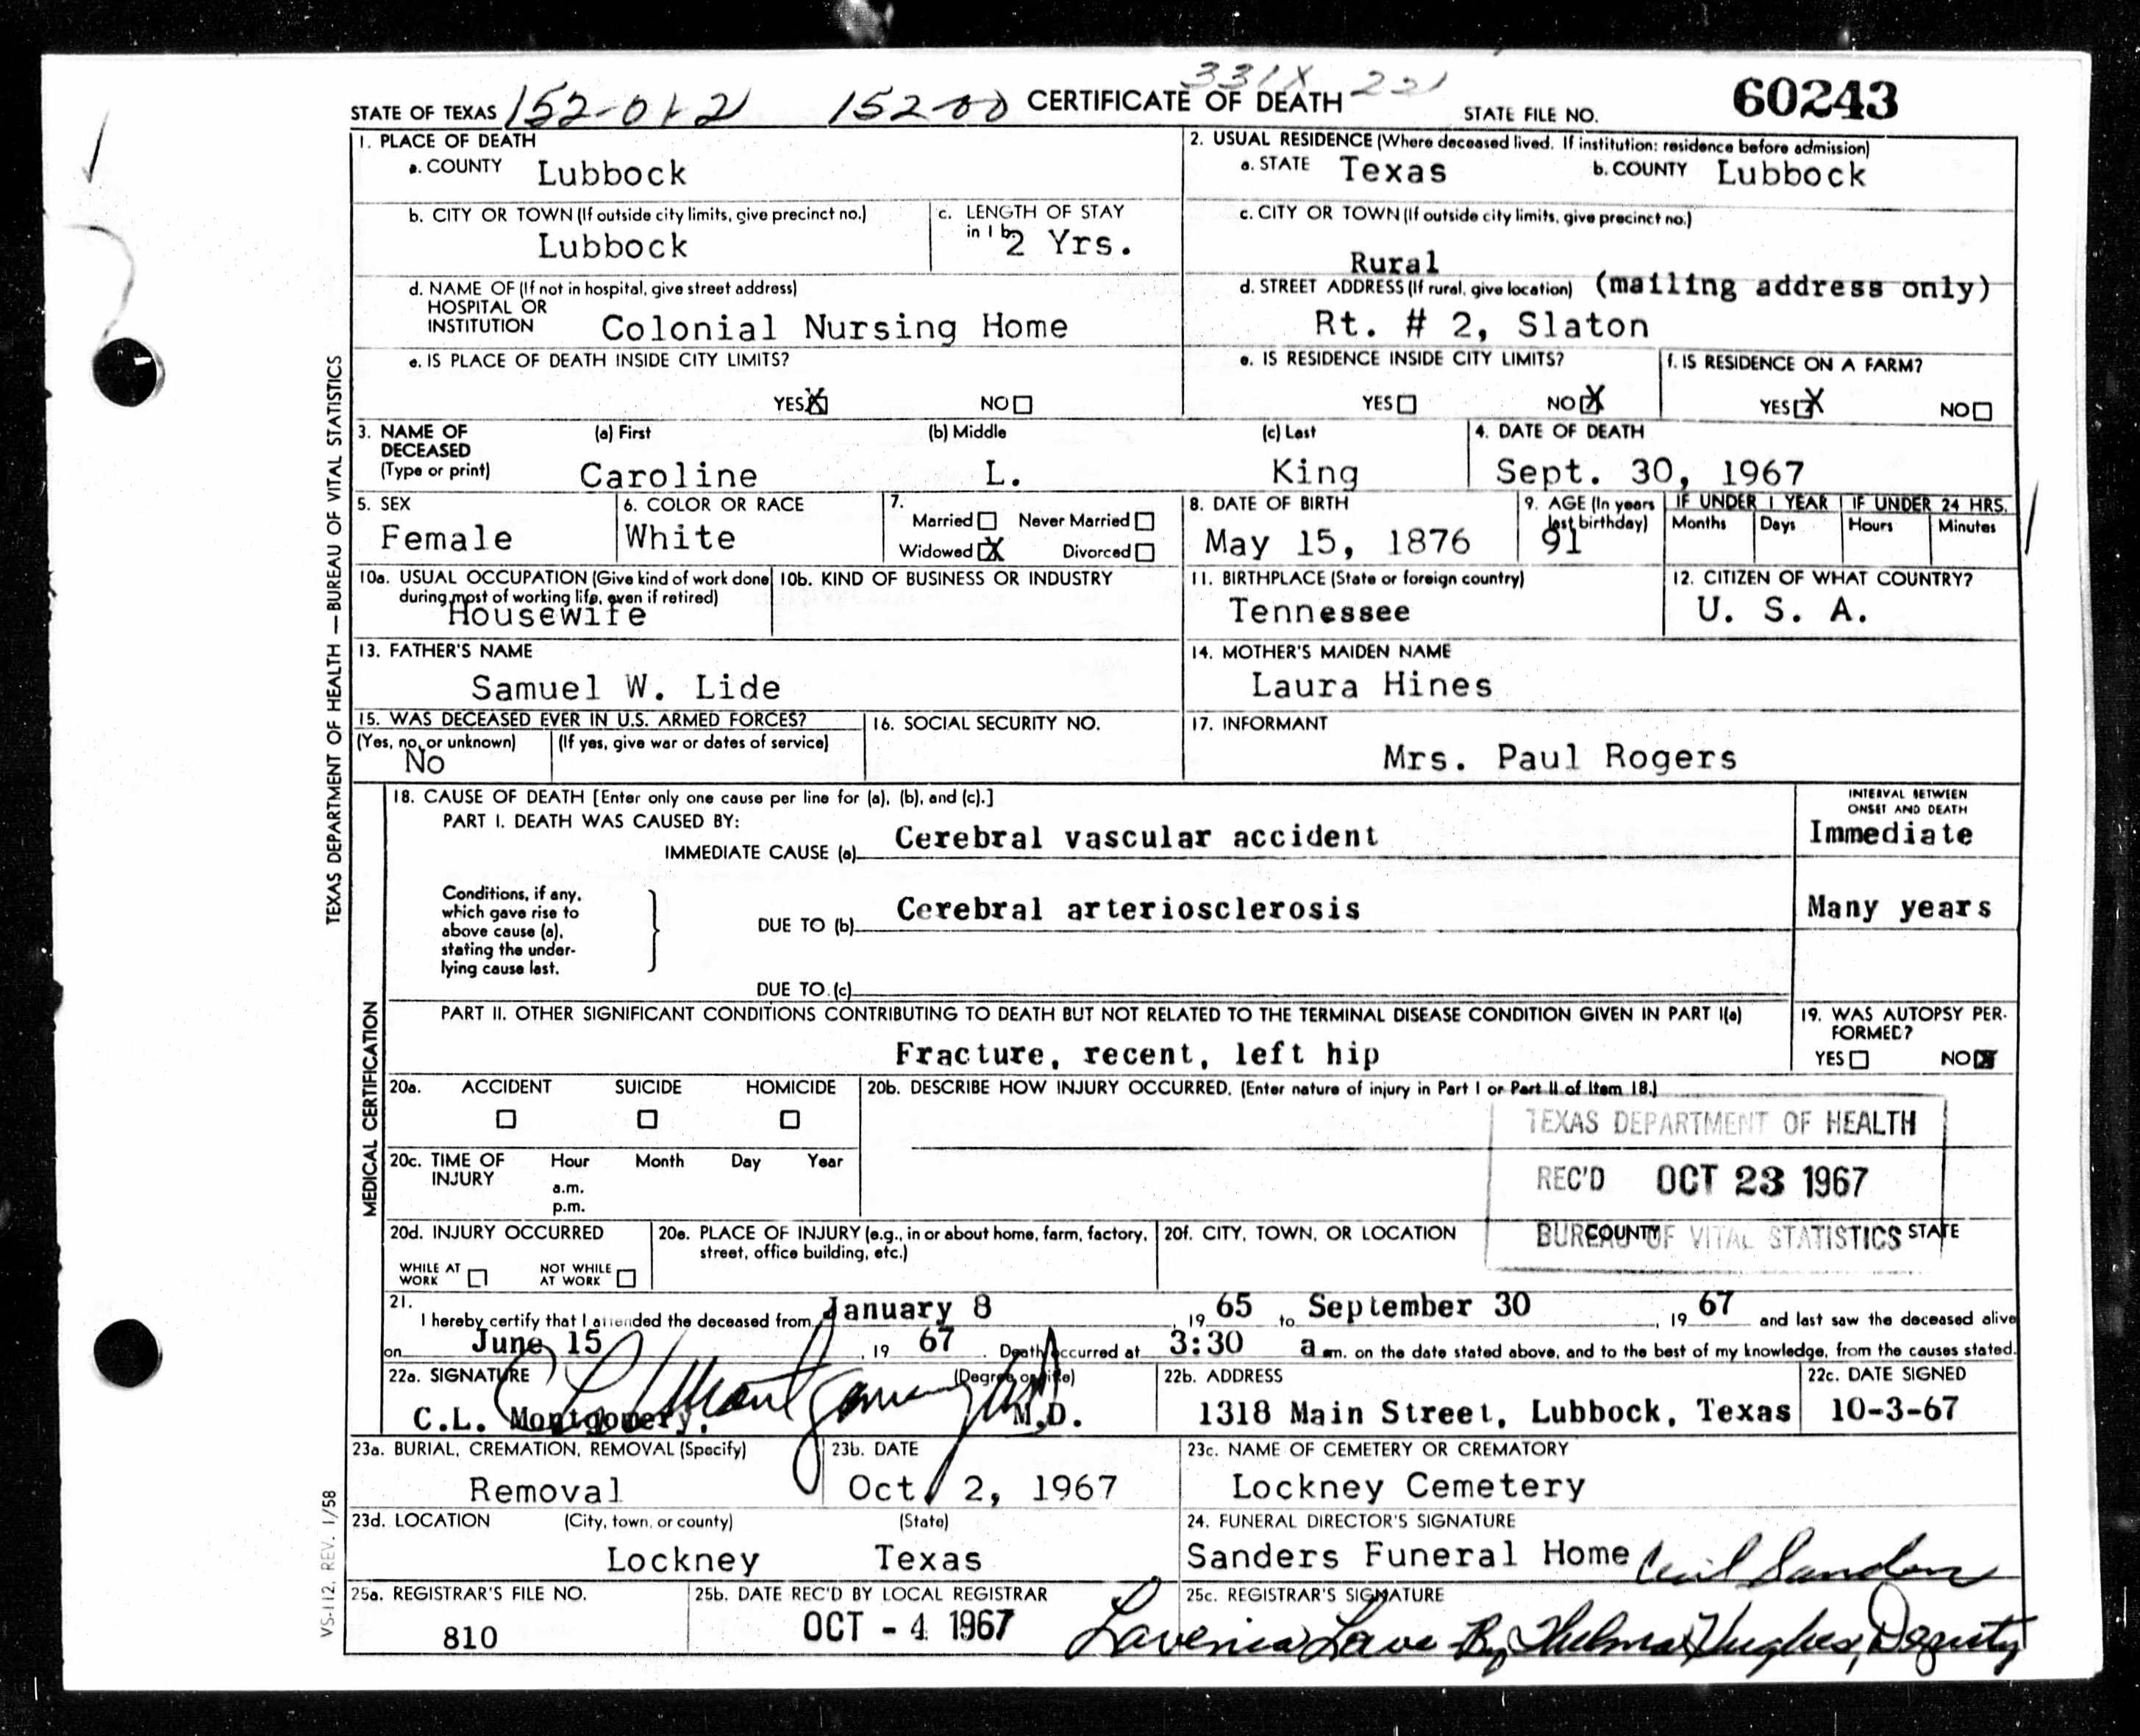 331X 221
STATE OF TEXAS 152-012 152-00 CERTIFICATE OF DEATH STATE FILE NO. 60243
1. PLACE OF DEATH
a. COUNTY Lubbock
2. USUAL RESIDENCE (Where deceased lived. If institution: residence before admission)
a. STATE Texas b. COUNTY Lubbock
b. CITY OR TOWN (If outside city limits, give precinct no.)
Lubbock
c. LENGTH OF STAY
in 1 b. 2 Yrs.
c. CITY OR TOWN (If outside city limits, give precinct no.)
Rural
d. NAME OF (If not in hospital, give street address)
HOSPITAL OR
INSTITUTION Colonial Nursing Home
d. STREET ADDRESS (If rural, give location) (mailing address only)
Rt. # 2, Slaton
e. IS PLACE OF DEATH INSIDE CITY LIMITS?
YES X NO
e. IS RESIDENCE INSIDE CITY LIMITS?
YES NO X
f. IS RESIDENCE ON A FARM?
YES X NO
3. NAME OF
DECEASED
(Type or print)
(a) First (b) Middle (c) Last
Caroline L. King
4. DATE OF DEATH
Sept. 30, 1967
5. SEX
Female
6. COLOR OR RACE
White
7.
Married Never Married
Widowed X Divorced
8. DATE OF BIRTH
May 15, 1876
9. AGE (In years
last birthday)
91
IF UNDER 1 YEAR
Months Days
IF UNDER 24 HRS.
Hours Minutes
10a. USUAL OCCUPATION (Give kind of work done
during most of working life, even if retired)
Housewife
10b. KIND OF BUSINESS OR INDUSTRY
11. BIRTHPLACE (State or foreign country)
Tennessee
12. CITIZEN OF WHAT COUNTRY?
U. S. A.
13. FATHER'S NAME
Samuel W. Lide
14. MOTHER'S MAIDEN NAME
Laura Hines
15. WAS DECEASED EVER IN U.S. ARMED FORCES?
(Yes, no, or unknown) (If yes, give war or dates of service)
No
16. SOCIAL SECURITY NO.
17. INFORMANT
Mrs. Paul Rogers
18. CAUSE OF DEATH [Enter only one cause per line for (a), (b), and (c).]
PART I. DEATH WAS CAUSED BY:
IMMEDIATE CAUSE (a) Cerebral vascular accident
INTERVAL BETWEEN
ONSET AND DEATH
Immediate
Conditions, if any,
which gave rise to
above cause (a),
stating the under-
lying cause last.
DUE TO (b) Cerebral arteriosclerosis
Many years
DUE TO (c)
PART II. OTHER SIGNIFICANT CONDITIONS CONTRIBUTING TO DEATH BUT NOT RELATED TO THE TERMINAL DISEASE CONDITION GIVEN IN PART I(a)
Fracture, recent, left hip
19. WAS AUTOPSY PER-
FORMED?
YES NO X
20a. ACCIDENT SUICIDE HOMICIDE
20b. DESCRIBE HOW INJURY OCCURRED. (Enter nature of injury in Part I or Part II of Item 18.)
TEXAS DEPARTMENT OF HEALTH
REC'D OCT 23 1967
BUREAU OF VITAL STATISTICS
20c. TIME OF
INJURY
Hour Month Day Year
a.m.
p.m.
20d. INJURY OCCURRED
WHILE AT
WORK
NOT WHILE
AT WORK
20e. PLACE OF INJURY (e.g., in or about home, farm, factory,
street, office building, etc.)
20f. CITY, TOWN, OR LOCATION COUNTY STATE
21.
I hereby certify that I attended the deceased from January 8, 19 65 to September 30, 19 67 and last saw the deceased alive
on June 15, 19 67. Death occurred at 3:30 a m. on the date stated above, and to the best of my knowledge, from the causes stated.
22a. SIGNATURE (Degree or title)
C L Montgomery MD
C.L. Montgomery, M.D.
22b. ADDRESS
1318 Main Street, Lubbock, Texas
22c. DATE SIGNED
10-3-67
23a. BURIAL, CREMATION, REMOVAL (Specify)
Removal
23b. DATE
Oct. 2, 1967
23c. NAME OF CEMETERY OR CREMATORY
Lockney Cemetery
23d. LOCATION (City, town, or county) (State)
Lockney Texas
24. FUNERAL DIRECTOR'S SIGNATURE
Sanders Funeral Home Cecil Sanders
25a. REGISTRAR'S FILE NO.
810
25b. DATE REC'D BY LOCAL REGISTRAR
OCT - 4 1967
25c. REGISTRAR'S SIGNATURE
Lavenia Lowe By Thelma Hughes, Deputy
TEXAS DEPARTMENT OF HEALTH — BUREAU OF VITAL STATISTICS
MEDICAL CERTIFICATION
VS-112, REV. 1/58